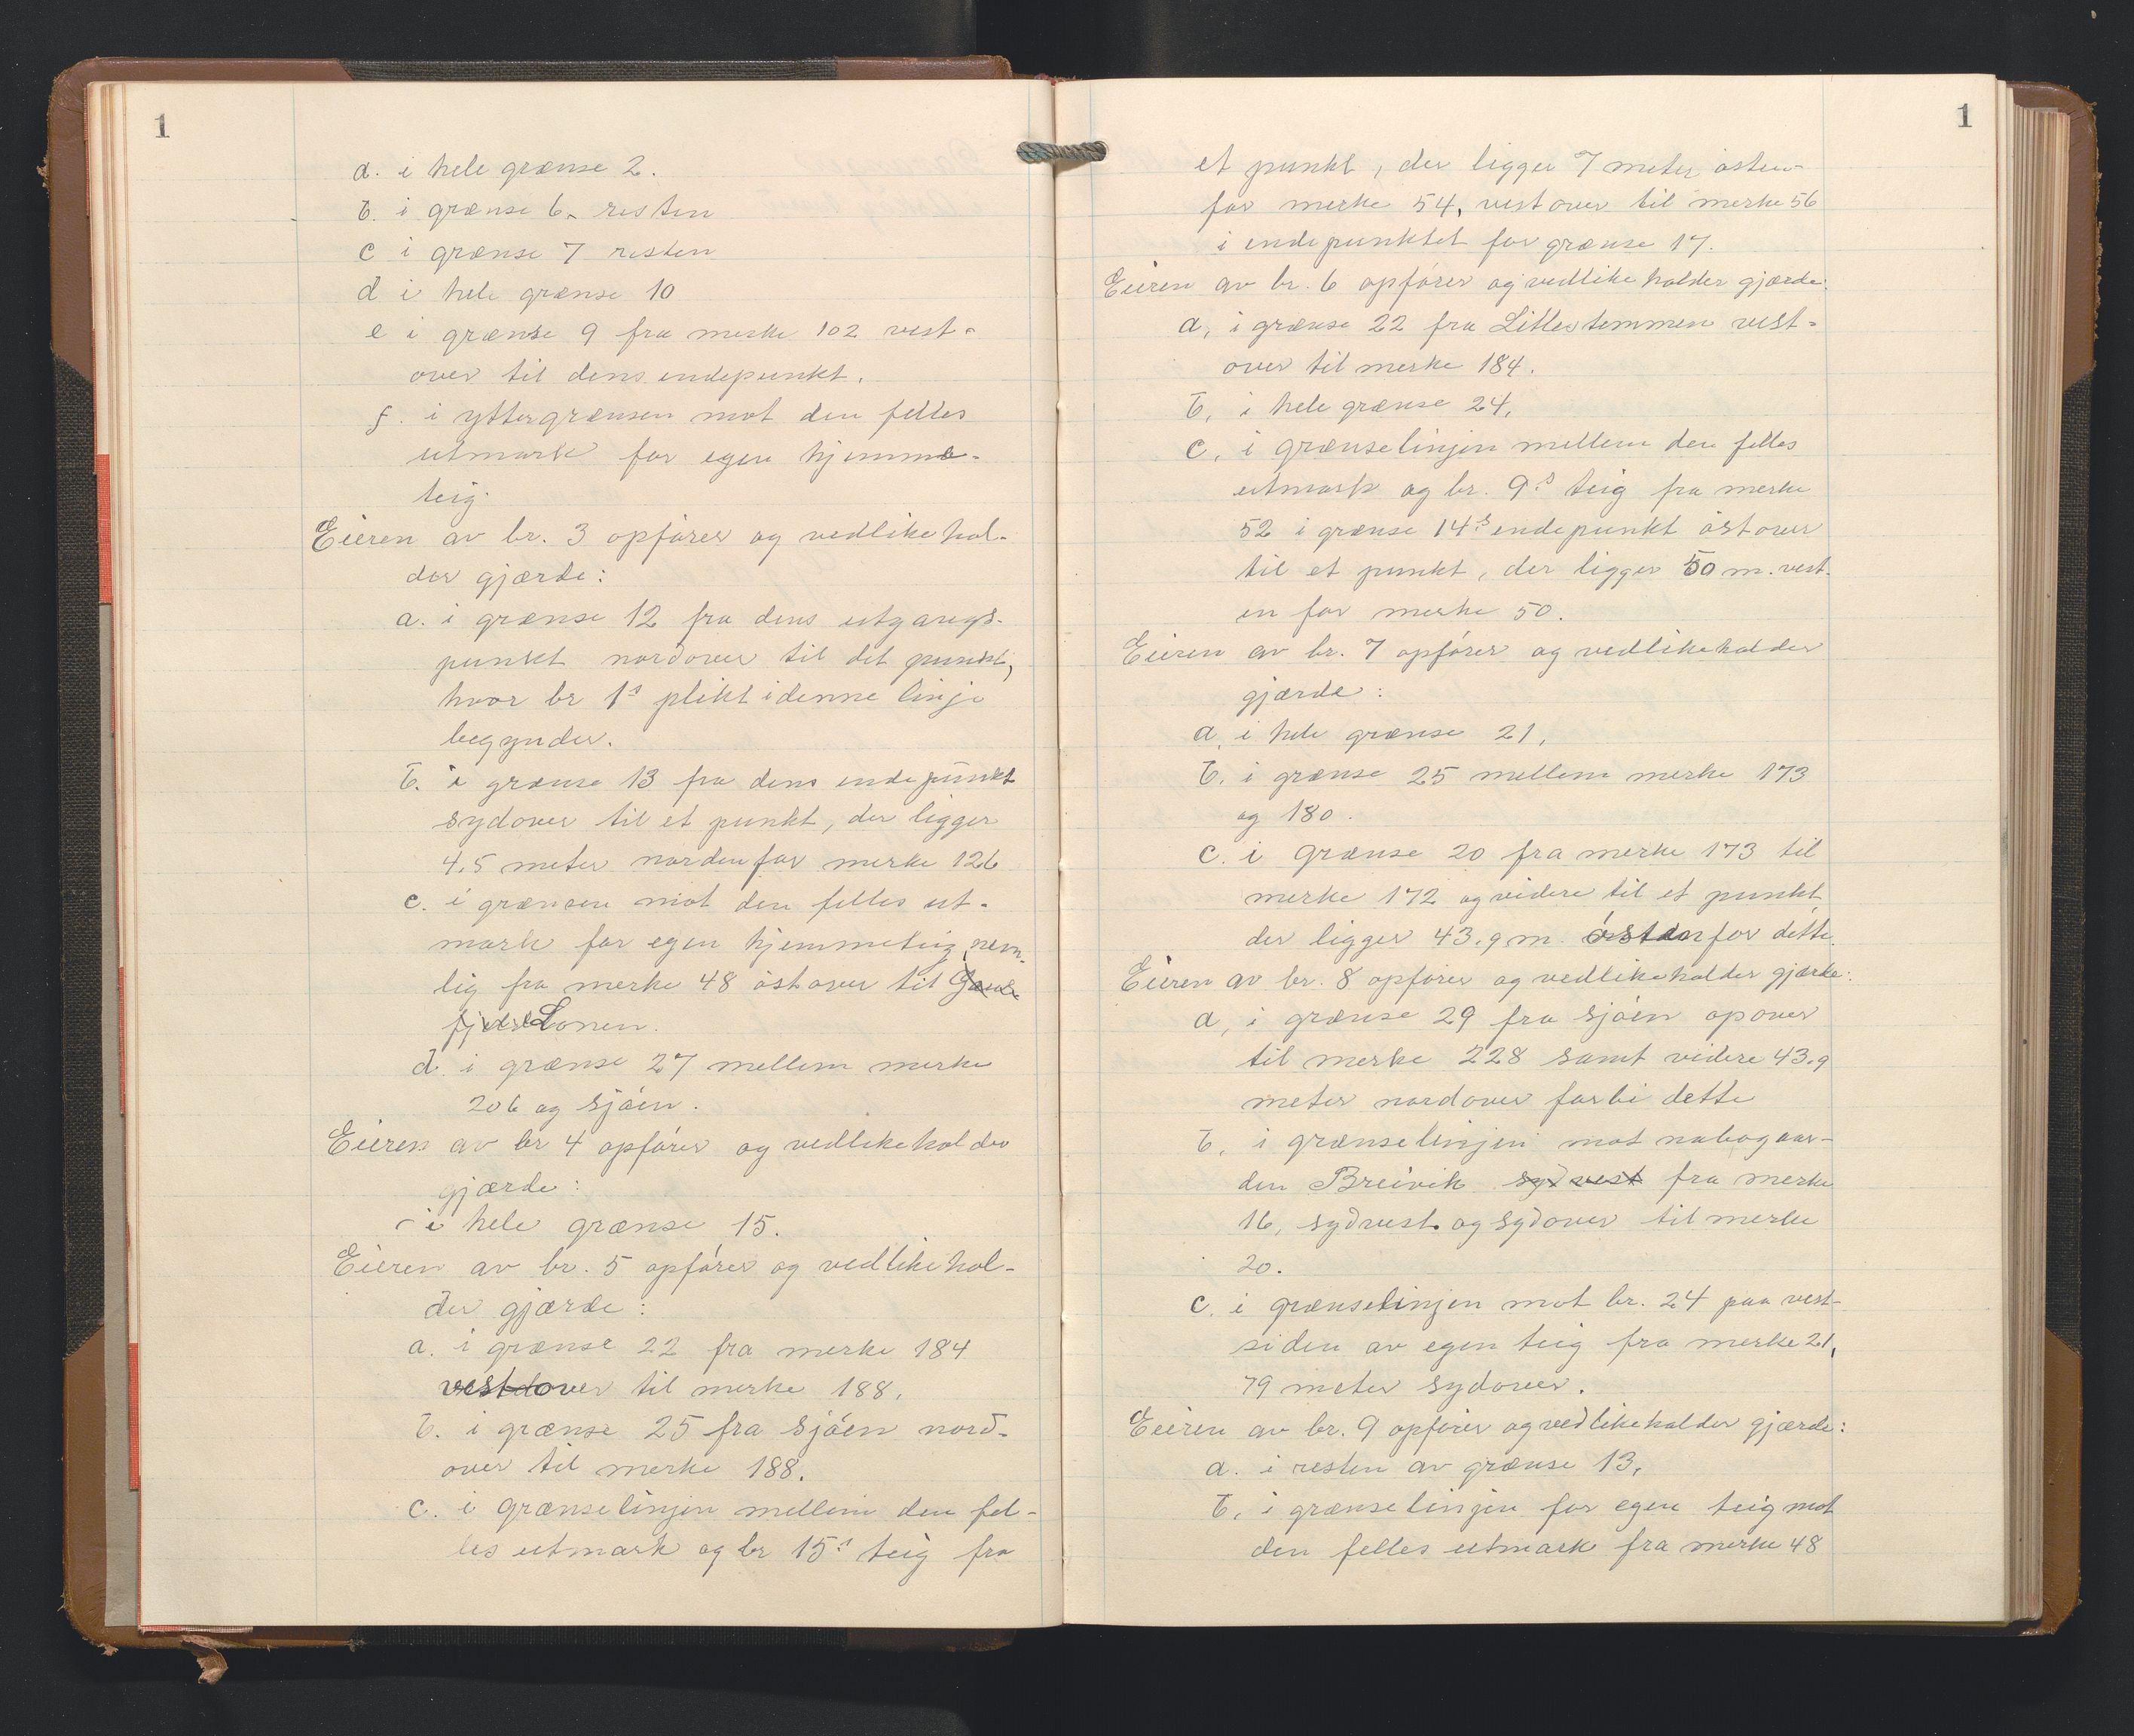 1
a. i hele grænse 2.
b. i grænse 6 - resten
c i grænse 7 resten
d i hele grænse 10
e i grænse 9 fra merke 102 vest-
over til dens endepunkt.
f. i yttergrænsen mot den felles
utmark for egen hjemme-
teig.
Eieren av br. 3 opfører og vedlikehol-
der gjærde:
a. i grænse 12 fra dens utgangs-
punkt nordover til det punkt,
hvor br 1s plikt i denne linje
begynder.
b. i grænse 13 fra dens endepunkt
sydover til et punkt, der ligger
4,5 meter nordenfor merke 126
c. i grænsen mot den felles ut-
mark for egen hjemmeteig, nem-
lig fra merke 48 østover til
Lonen.
d. i grænse 27 mellem merke
206 og sjøen.
Eieren av br 4 opfører og vedlikeholder
gjærde:
- i hele grænse 15.
Eieren av br. 5 opfører og vedlikehol-
der gjærde:
a. i grænse 22 fra merke 184
vestover til merke 188.
b. i grænse 25 fra sjøen nord-
over til merke 188.
c. i grænselinjen mellem den fel-
les utmark og br 15s teig fra
1
et punkt, der ligger 7 meter østen-
for merke 54, vestover til merke 56
i endepunktet for grænse 17.
Eieren av br. 6 opfører og vedlikeholder gjærde:
a, i grænse 22 fra Lillestemmen vest-
over til merke 184.
b, i hele grænse 24,
c, i grænselinjen mellem den felles
utmark og br. 9s teig fra merke
52 i grænse 14s endepunkt østover
til et punkt, der ligger 50 m. vest-
en for merke 50.
Eieren av br. 7 opfører og vedlikeholder
gjærde:
a, i hele grænse 21,
b, i grænse 25 mellem merke 173
og 180.
c. i grænse 20 fra merke 173 til
merke 172 og videre til et punkt,
der ligger 43,9 m. østenfor dette.
Eieren av br. 8 opfører og vedlikeholder gjærde:
a, i grænse 29 fra sjøen opover
til merke 228 samt videre 43,9
meter nordover forbi dette
b, i grænselinjen mot nabogaar-
den Breivik sydvest fra merke
16, sydvest og sydover til merke
20.
c. i grænselinjen mot br. 24 paa vest-
siden av egen teig fra merke 21,
79 meter sydover.
Eieren av br. 9 opfører og vedlikeholder gjærde:
a. i resten av grænse 13,
b, i grænselinjen for egen teig mot
den felles utmark fra merke 48